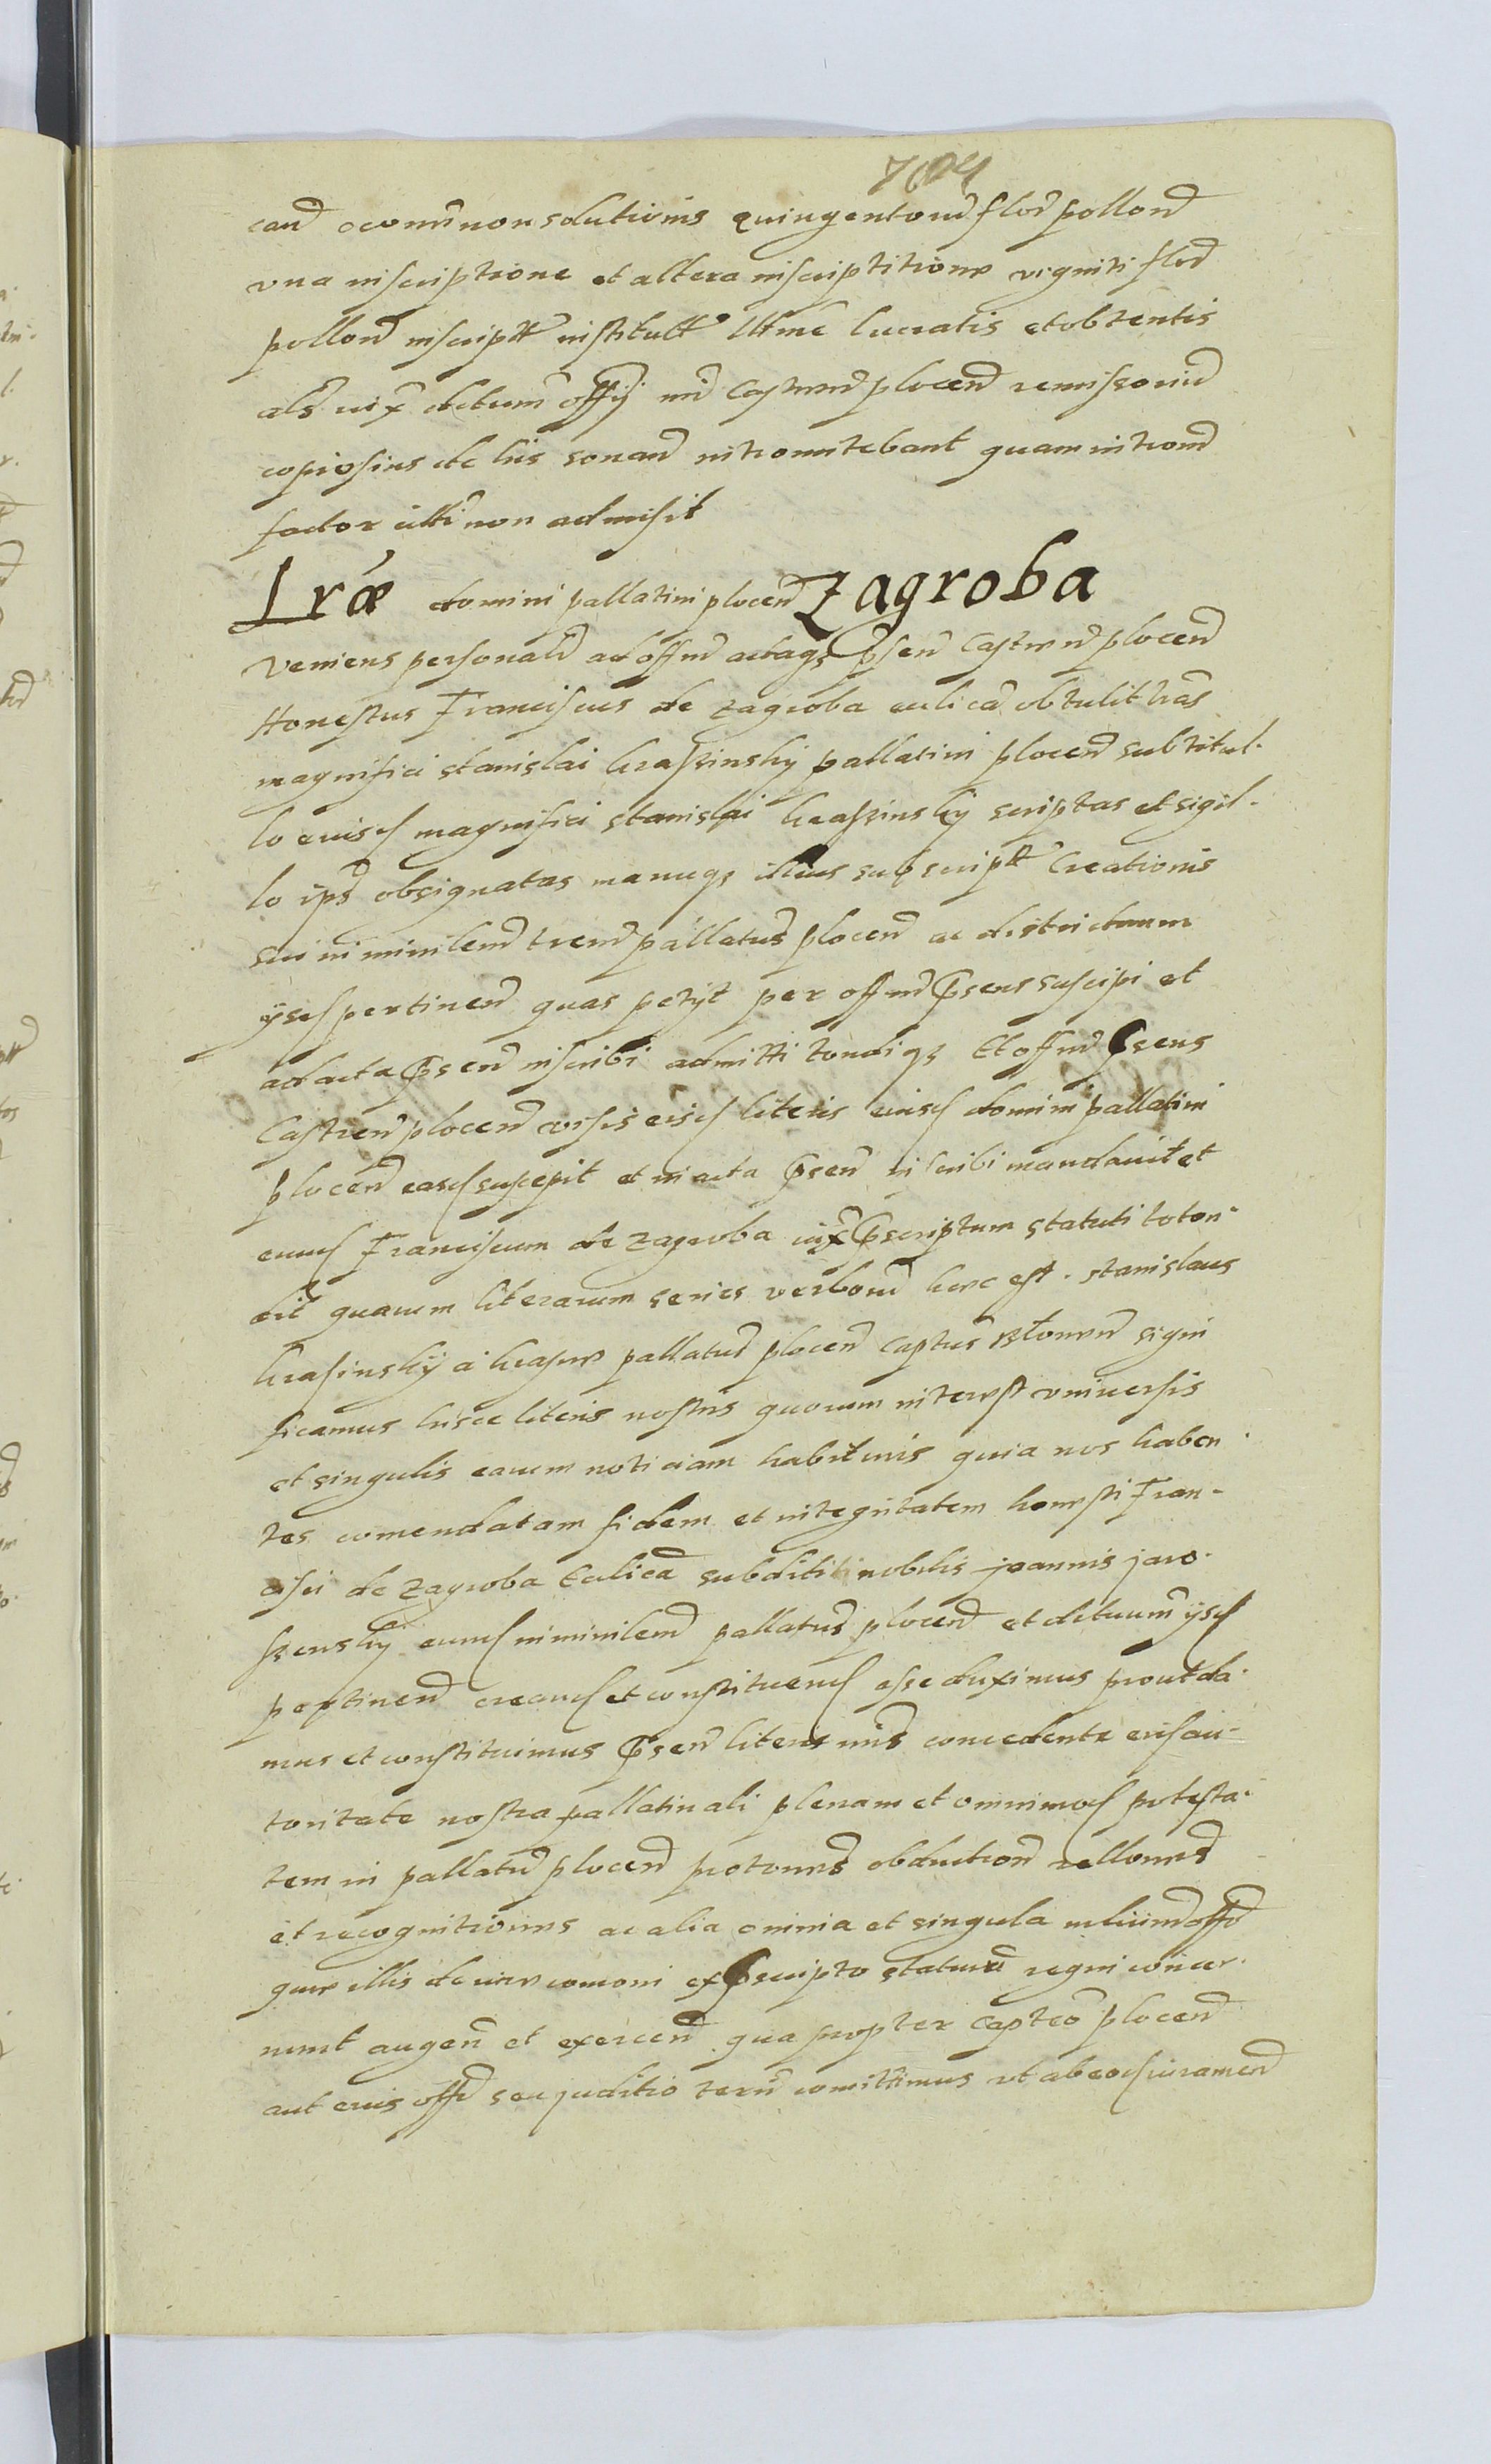 cau͠ o conu͠ non solutionis quingentoru͠ flor͠ pollon͠
vna inscriptione et altera inscriptitione vigniti flor͠
pollon͠ inscript͠ institutt͠ ultime lucratis et obtentis
als͠ iux͠ dcturm͠ offÿ nr͠i Castren͠ plocen͠ remissoriu͠
copiosius de hÿs sonan͠ intromitebant quam intromi͠
factor illi non admisit
Lr͠æ domini pallatini plocen͠ Zagroba
veniens personalr͠ ad offm͠ actaq3 p͠sen͠ Castren͠ plocen͠
Honestus Franciscus de Zagroba eulica͠ obtulit lr͠as
magnifici stanislai krassinskÿ pallatini plocen͠ sub titul-
lo eiusd magnifici stanislai krassinskÿ scriptas et sigil-
lo ips͠ obsignatas manuq3 illius subscript͠ Creationis
sui in ministem͠ trem͠ pallatus͠ plocen͠ ac districtuum
ÿsd pertinen͠ quas petÿt per offm͠ p͠sens suscipi et
ad acta p͠sen͠ inscribi admitti tondiq3 Et offm͠ p͠sens
Castren͠ plocen͠ visis eisd literis eiusd domini pallatini
plocen͠ easd suscepit et in acta p͠sen͠ inscribi mandavit et
eund Franciscum de Zagroba iux͠ p͠scriptum statuti toton-
dit quarum literarum series verborum͠ haec est. stanislaus
krasinskÿ a krasne pallatus͠ plocen͠ captus͠ signi
ficamus hisce literis nostris quorum interest vniuersis
et singulis earum noticiam habituris quia nos haben-
tes comendatam fidem et integritatem honesti Fran-
cisci de Zagroba Eulica͠ subditi nobilis joannis jaro-
szenskÿ eund in ministem͠ pallatus͠ plocen͠ et dctuum͠ ÿsd
pertinen͠ creand et constituend esse duximus prout da-
mus et constituimus p͠sen͠ literis nr͠is concedente eid au-
toritate nostra pallatinali plenam et omnimod potesta-
tem in pallatu͠ plocen͠ obduction͠ rellones͠
et recognitionis ac alia omnia et singula
quae illis de iure comoni ex p͠scripto statutu͠ regni concer-
nunt augen͠ et exercen͠ quapropter Capteo͠ plocen͠
aut eius offo͠ seu juditio terr͠i comittimus vt ab eod iuramen͠